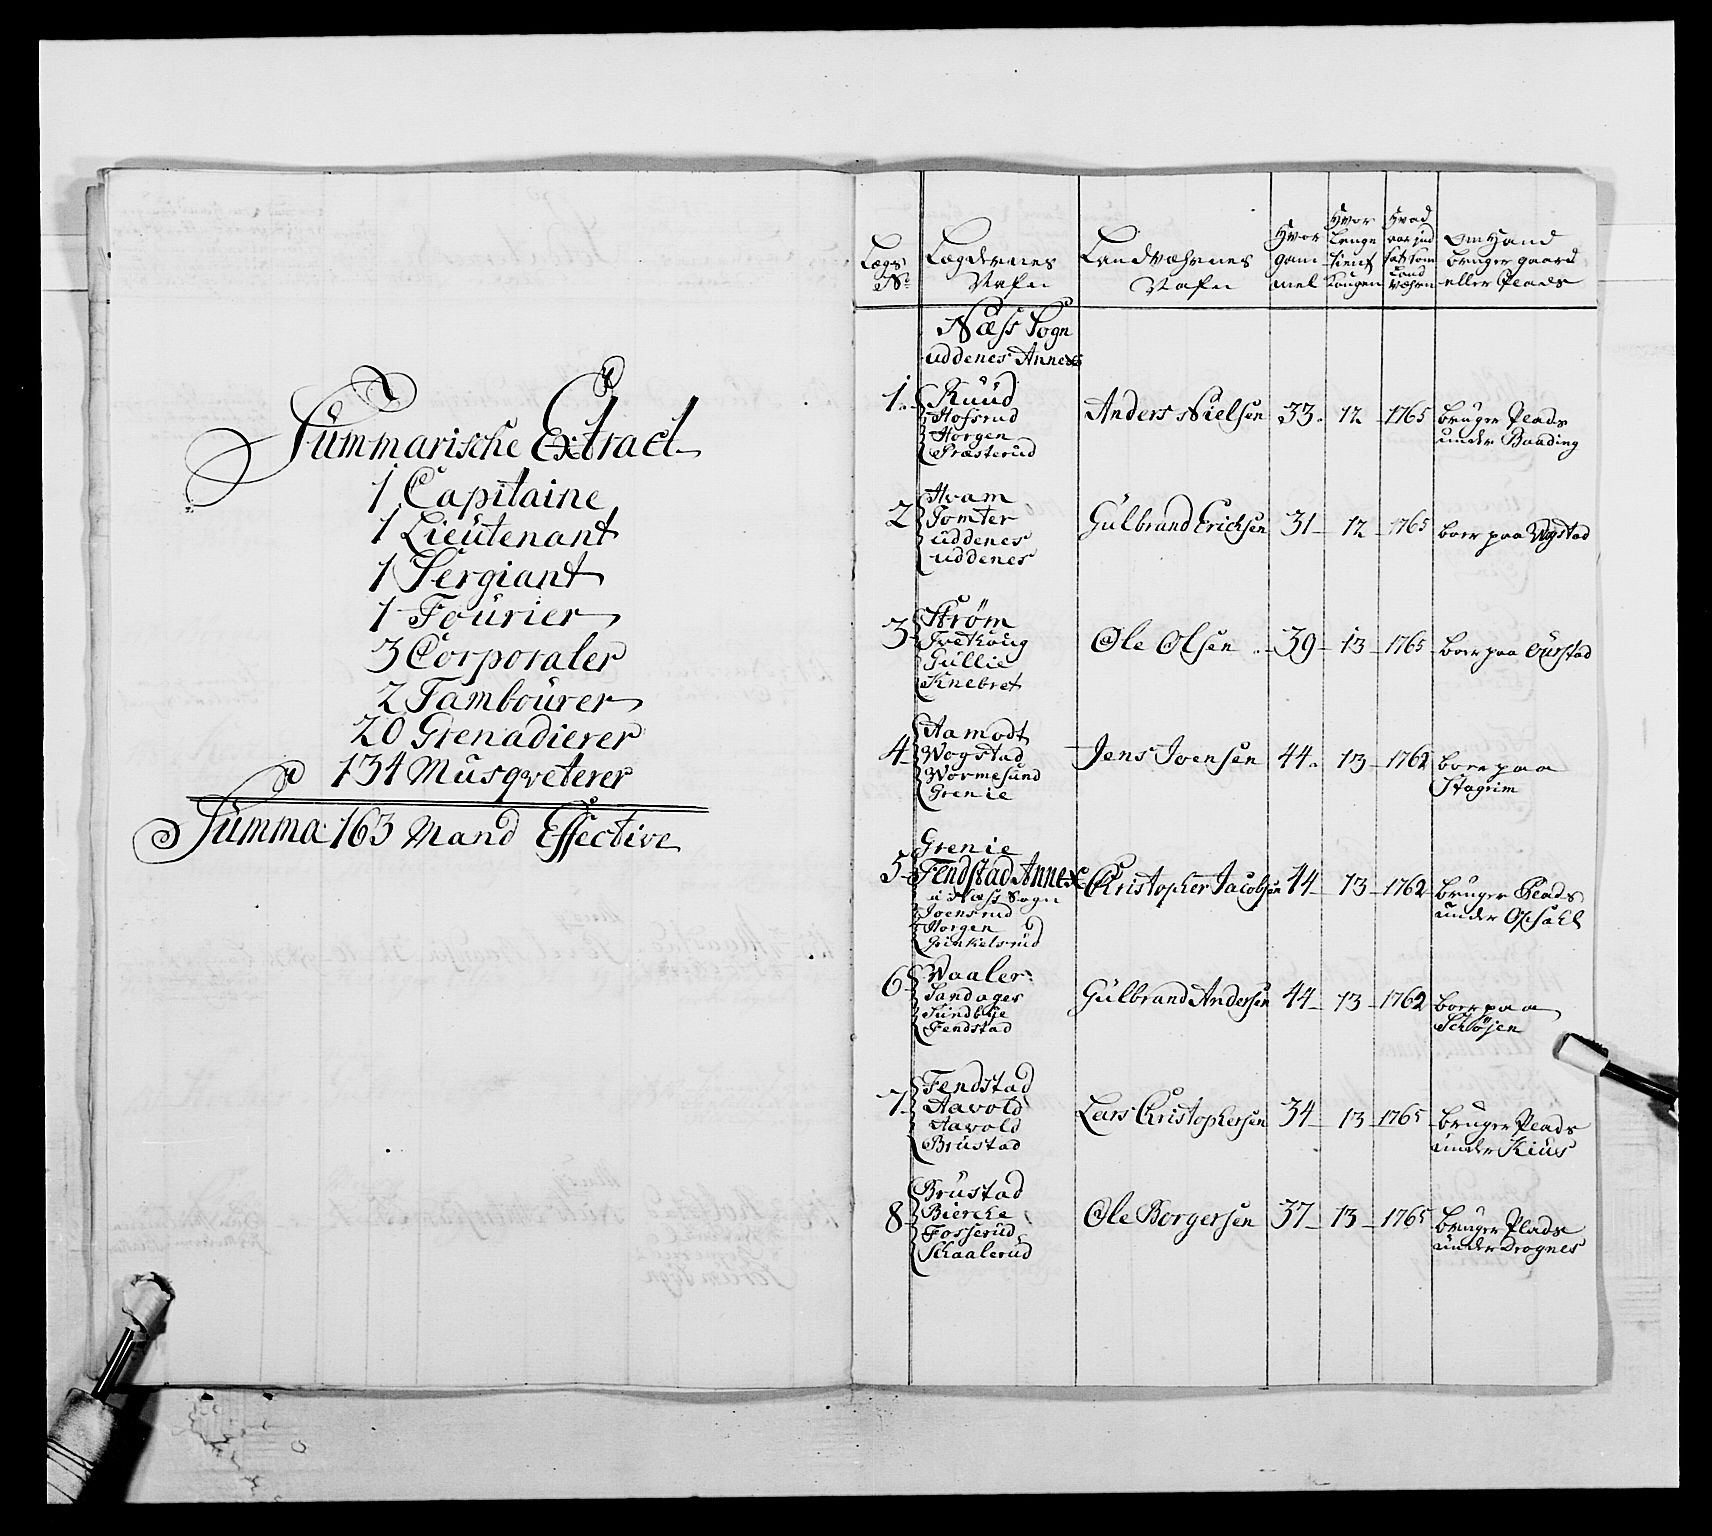 Summarische Extract
1 Capitaine
1 Lieutenant
1 Sergiant
1 Fourier
3 Corporaler
2 Tambourer
20 Grenadierer
134 Musqveterer
Summa 163 Mand Effective
Lægs No
Lægdernes Nafn
Landværnes Nafn
Hvor gam mel
Hvor lenge tient Kongen
Hvad aar ind sat som Land værn
Om Hand bruger gaard eller Plads
Næss Sogn
Uddenes Annex
1. Ruud
Hofsrud
Horgen
Præsterud
Anders Nielsen 33. 12 1765 bruger Plads
under Baading
2 Hvam
Tomter
Uddenes
Uddenes
Gulbrand Erichsen 31 12 1765 boer paa Wogstad
3 Strøm
Gullie
Knebret
Ole Olsen 39 13 1765 boer paa Aurstad
4 Aamodt
Wogstad
Wormesund
Grenie
Jens Ivensen 44. 13 1762 boer paa
Hagrim
5 Grenie
Fendstad Annex
i Næss Sogn
Ivensrud
Horgen
Grinkelsrud
Christopher Jacobsen 44 13 1762 bruger Plads
under Opsahl
6 Waaler
Sandager
Sundbye
Fendstad
Gulbrand Andersen 44 13 1762 boer paa
Schøjen
7 Fendstad
Aavold
Aavold
Brustad
Lars Christophersen 34 13 1765 bruger Plads
under Kius
8 Brustad
Biercke
Fosserud
Schaalerud
Ole Borgersen 37 13 1765 bruger Plads
under Drognes